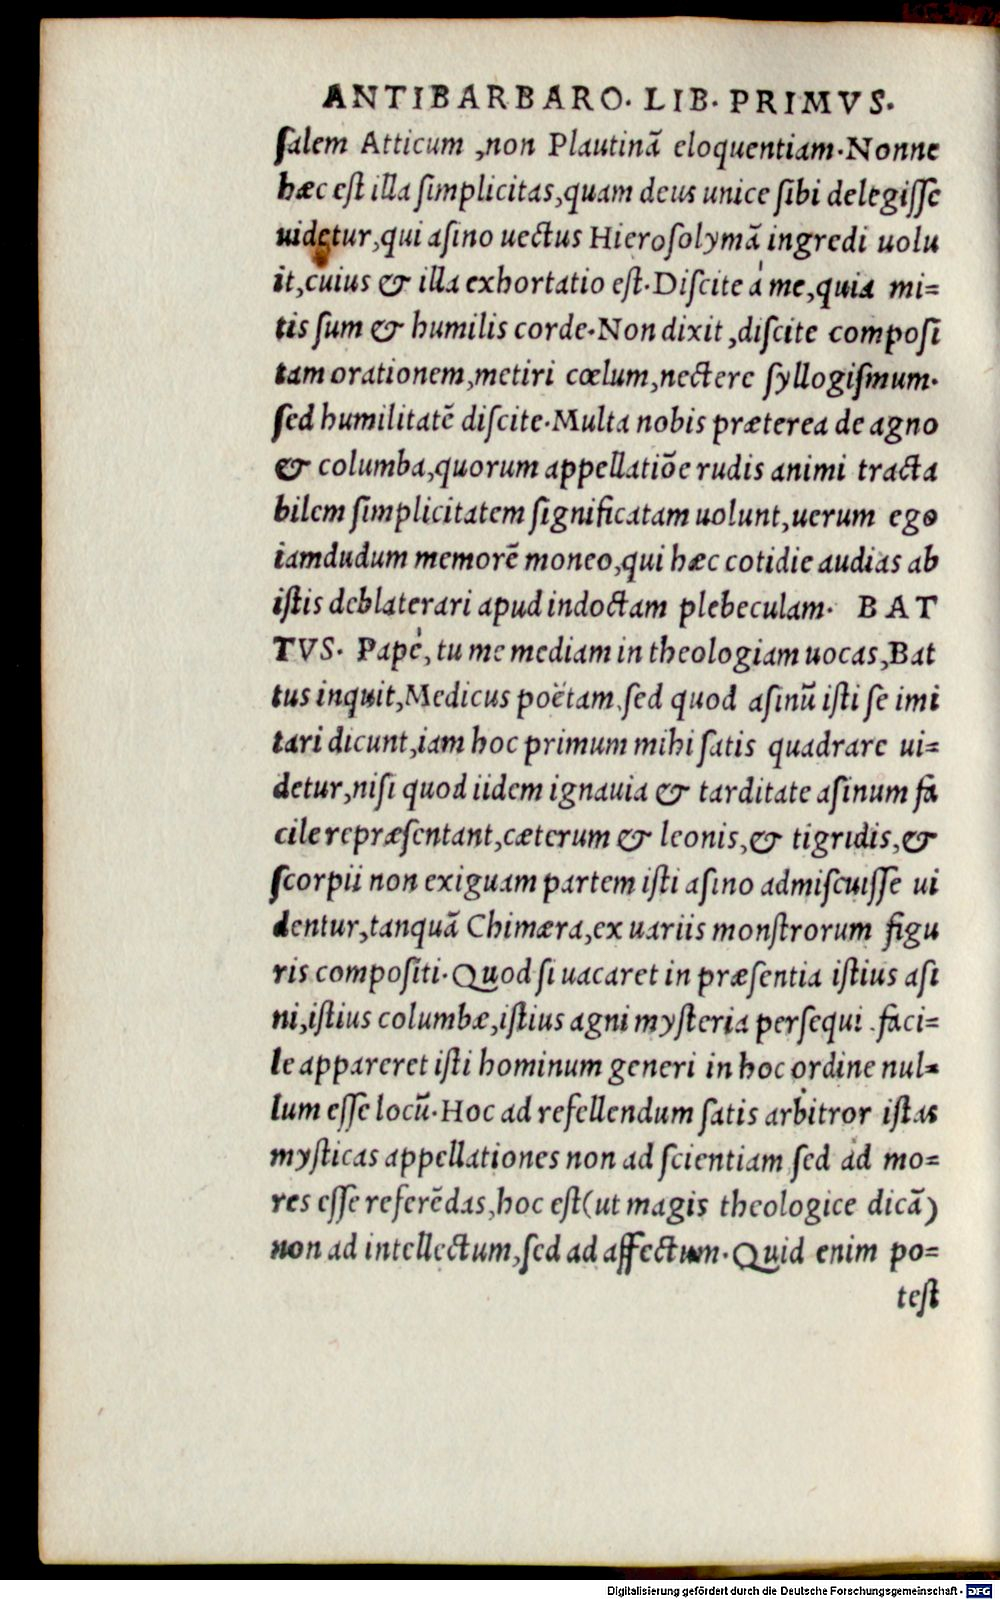 ANTIBARBARO. LIB. PRIMVS.
ſalem Atticum ,non Plautinã eloquentiam.Nonne
hæc eſt illa ſimplicitas,quam deus unice ſibi delegiſſe
uidetur,qui aſino uectus Hieroſolymã ingredi uolu
it,cuius & illa exhortatio eſt.Diſcite à me,quia mi=
tis ſum & humilis corde.Non dixit ,diſcite compoſi
tam orationem,metiri cœlum,nectere ſyllogiſmum.
ſed humilitatẽ diſcite.Multa nobis præterea de agno
& columba,quorum appellatiõe rudis animi tracta
bilem ſimplicitatem ſignificatam uolunt,uerum ego
iamdudum memorẽ moneo,qui hæc cotidie audias ab
iſtis deblaterari apud indoctam plebeculam. BAT
TVS. Papè, tu me mediam in theologiam uocas,Bat
tus inquit,Medicus poëtam,ſed quod aſinũ iſti ſe imi
tari dicunt,iam hoc primum mihi ſatis quadrare ui=
detur,niſi quod iidem ignauia & tarditate aſinum fa
cile repræſentant,cæterum & leonis,& tigridis,&
ſcorpii non exiguam partem iſti aſino admiſcuiſſe ui
dentur,tanquã Chimæra,ex uariis monſtrorum figu
ris compoſiti.Quod ſi uacaret in præſentia iſtius aſi
ni,iſtius columbæ,iſtius agni myſteria perſequi .faci=
le appareret iſti hominum generi in hoc ordine nul=
lum eſſe locũ.Hoc ad refellendum ſatis arbitror iſtas
myſticas appellationes non ad ſcientiam ſed ad mo=
res eſſe referẽdas,hoc eſt(ut magis theologice dicã)
non ad intellectum,ſed ad affectum.Quid enim po=
teſt
Digitalisierung gefördert durch die Deutsche Forschungsgemeinschaft - DFG